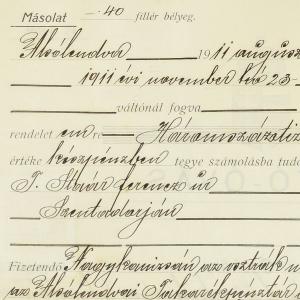 Másolat 40 fillér bélyeg.
Alsólendva 1911 augusz
1911 évi november hó 23-
váltónál fogva
rendelet em re Háromszáztiz
értéke készpénzben tegye számolásba tudó
T. Stuár Ferencz úr
Szentadorján
Fizetendő Nagykanizsán az osztrák m
az Alsólendvai Takarékpénztár